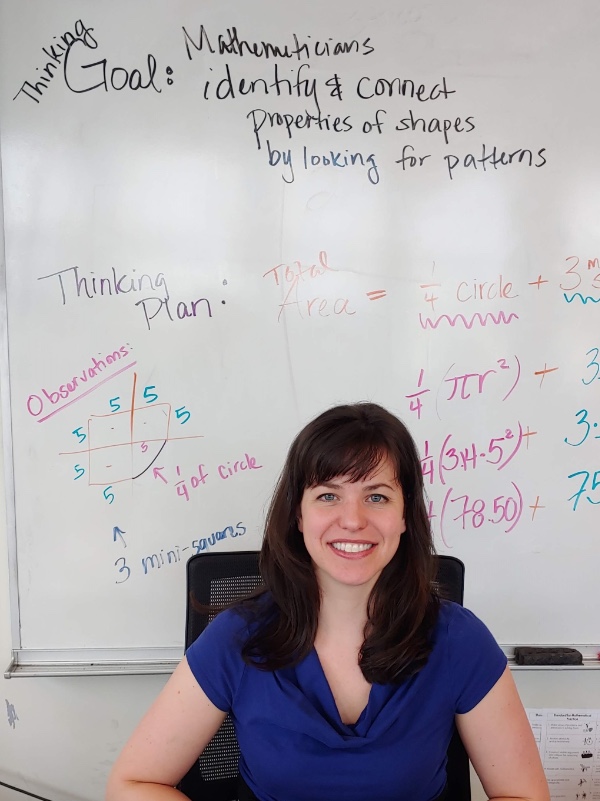 Thinking
Goal: Mathematicians
identify & connect
properties of shapes
by looking for patterns
Thinking
Plan:
Total
Area = 1/4 circle + 3
1/4 (πr²) + 3
1/4 (3.14·5²) + 3·
(78.50) + 75
Observations:
5 5
5 5
5 5
5
1/4 of circle
3 mini-squares